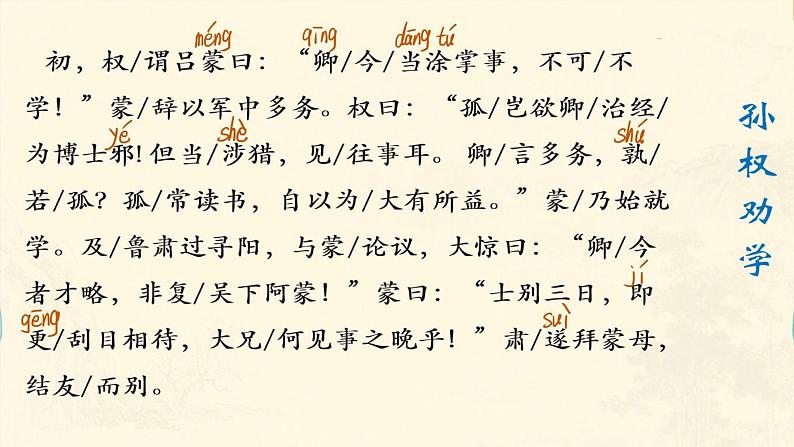 méng qīng dāng tú
初，权/谓吕蒙曰：“卿/今/当涂掌事，不可/不
学！”蒙/辞以军中多务。权曰：“孤/岂欲卿/治经/
yé shè shú
为博士邪!但当/涉猎，见/往事耳。卿/言多务，孰/
若/孤？孤/常读书，自以为/大有所益。”蒙/乃始就
学。及/鲁肃过寻阳，与蒙/论议，大惊曰：“卿/今
jí
者才略，非复/吴下阿蒙！”蒙曰：“士别三日，即
gēng suì
更/刮目相待，大兄/何见事之晚乎！”肃/遂拜蒙母，
结友/而别。
孙权劝学